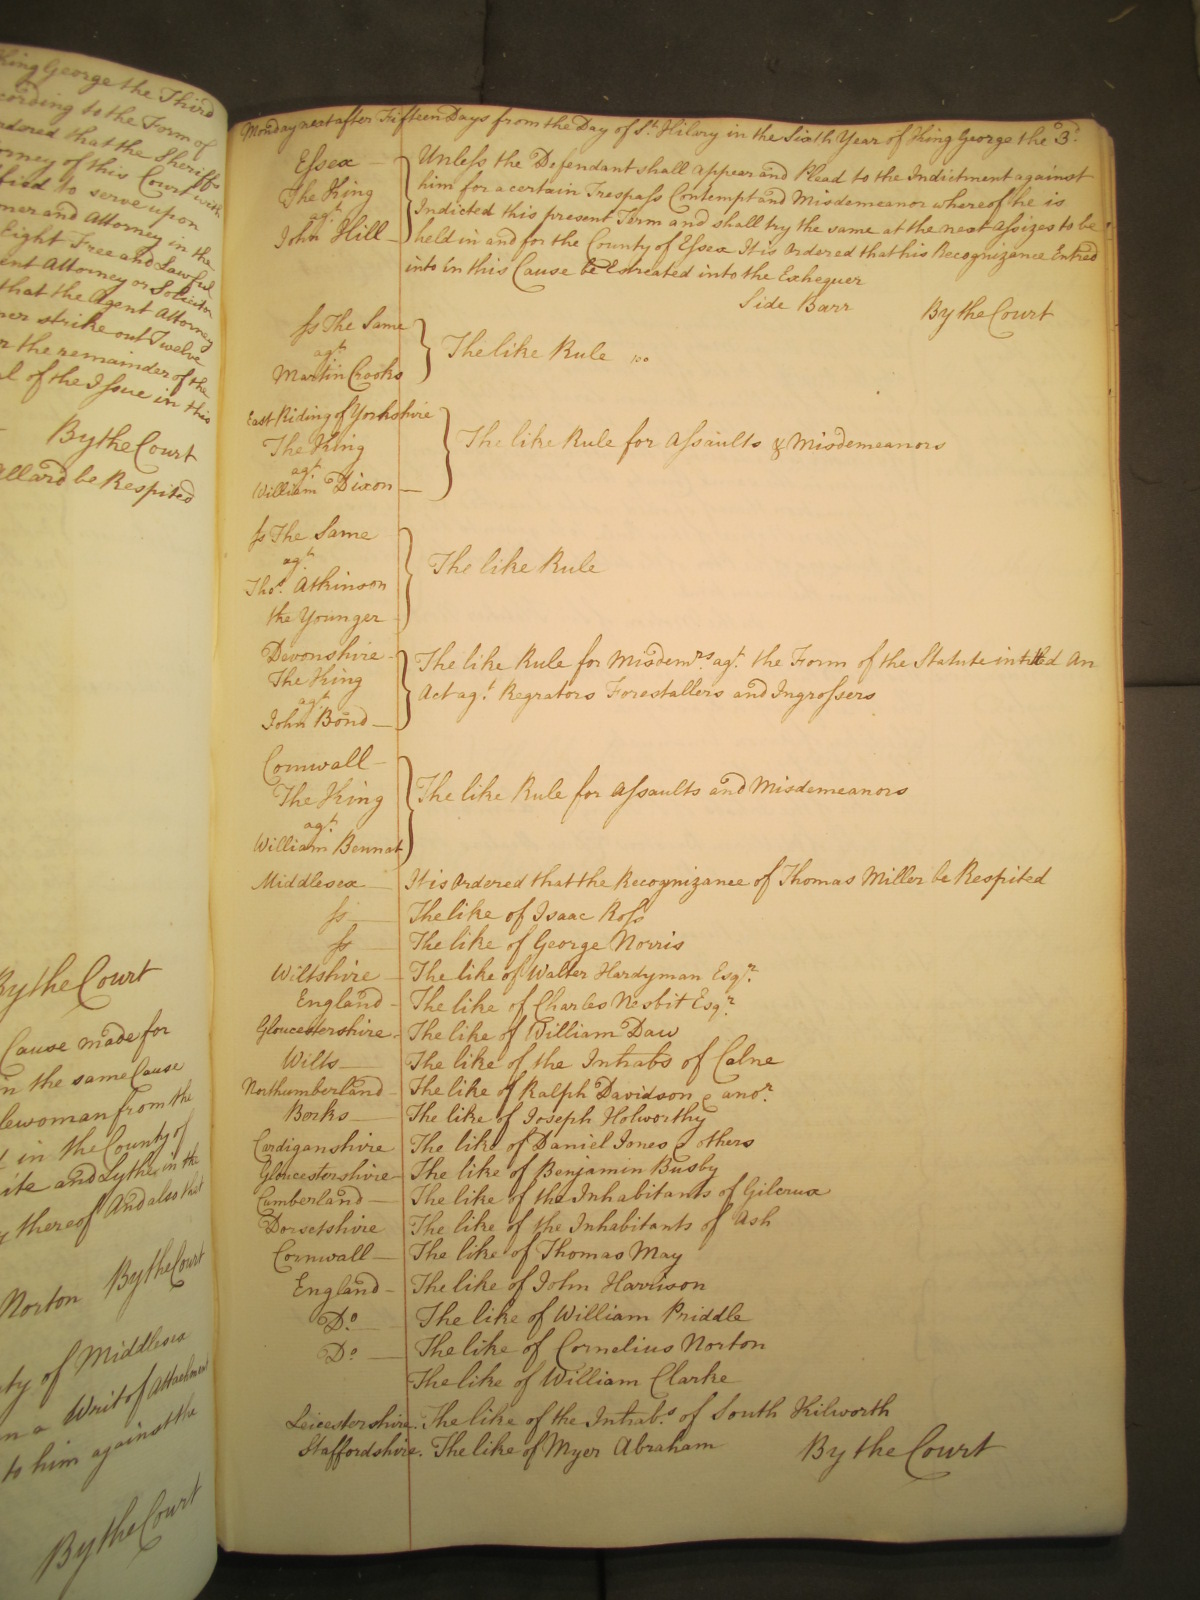 King George the Third
cording to the Form of
ordered that the Sheriffs
orney of this Court with
fied to serve upon
oner and Attorney in the
Eight Free and Lawful
ent Attorney or Solicitor
that the Agent Attorney
ner strike out Twelve
n the remainder of the
al of the Issue in this
By the Court
allard be Respited
By the Court
Cause made for
in the same Cause
lewoman from the
in the County of
ite and Lythe in the
thereof And also that
Norton By the Court
ty of Middlesex
n a Writ of Attachment
to him against the
By the Court
Monday next after Fifteen Days from the Day of St. Hilary in the Sixth Year of King George the 3d.
Essex
The King
agt.
John Hill
Unless the Defendant shall appear and Plead to the Indictment against
him for a certain Trespass Contempt and Misdemeanor whereof he is
Indicted this present Term and shall try the same at the next Assizes to be
held in and for the County of Essex It is Ordered that his Recognizance Entred
into in this Cause be Estreated into the Exhequer
Side Barr By the Court
Ss The Same
agt.
Martin Crooks
The like Rule
East Riding of Yorkshire
The King
agt.
William Dixon
The like Rule for Assaults & Misdemeanors
Ss The Same
agt.
Thos. Atkinson
the Younger
The like Rule
Devonshire
The King
agt.
John Bond
The like Rule for Misdemrs. agt. the Form of the Statute intitled An
Act agt. Regrators Forestallers and Ingrossers
Cornwall
The King
agt.
William Bennat
The like Rule for Assaults and Misdemeanors
Middlesex It is Ordered that the Recognizance of Thomas Miller be Respited
Ss The like of Isaac Ross
Ss The like of George Norris
Wiltshire The like of Walter Hardyman Esqr.
England The like of Charles Nesbit Esqr.
Gloucestershire The like of William Daw
Wilts The like of the Inhabs of Calne
Northumberland The like of Ralph Davidson & anor.
Berks The like of Joseph Holworthy
Cardiganshire The like of Daniel Jones & others
Gloucestershire The like of Benjamin Busby
Cumberland The like of the Inhabitants of Gilcrux
Dorsetshire The like of the Inhabitants of Ash
Cornwall The like of Thomas May
England The like of John Harrison
Do. The like of William Priddle
Do. The like of Cornelius Norton
The like of William Clarke
Leicestershire. The like of the Inhabs. of South Kilworth
Staffordshire. The like of Myer Abraham By the Court